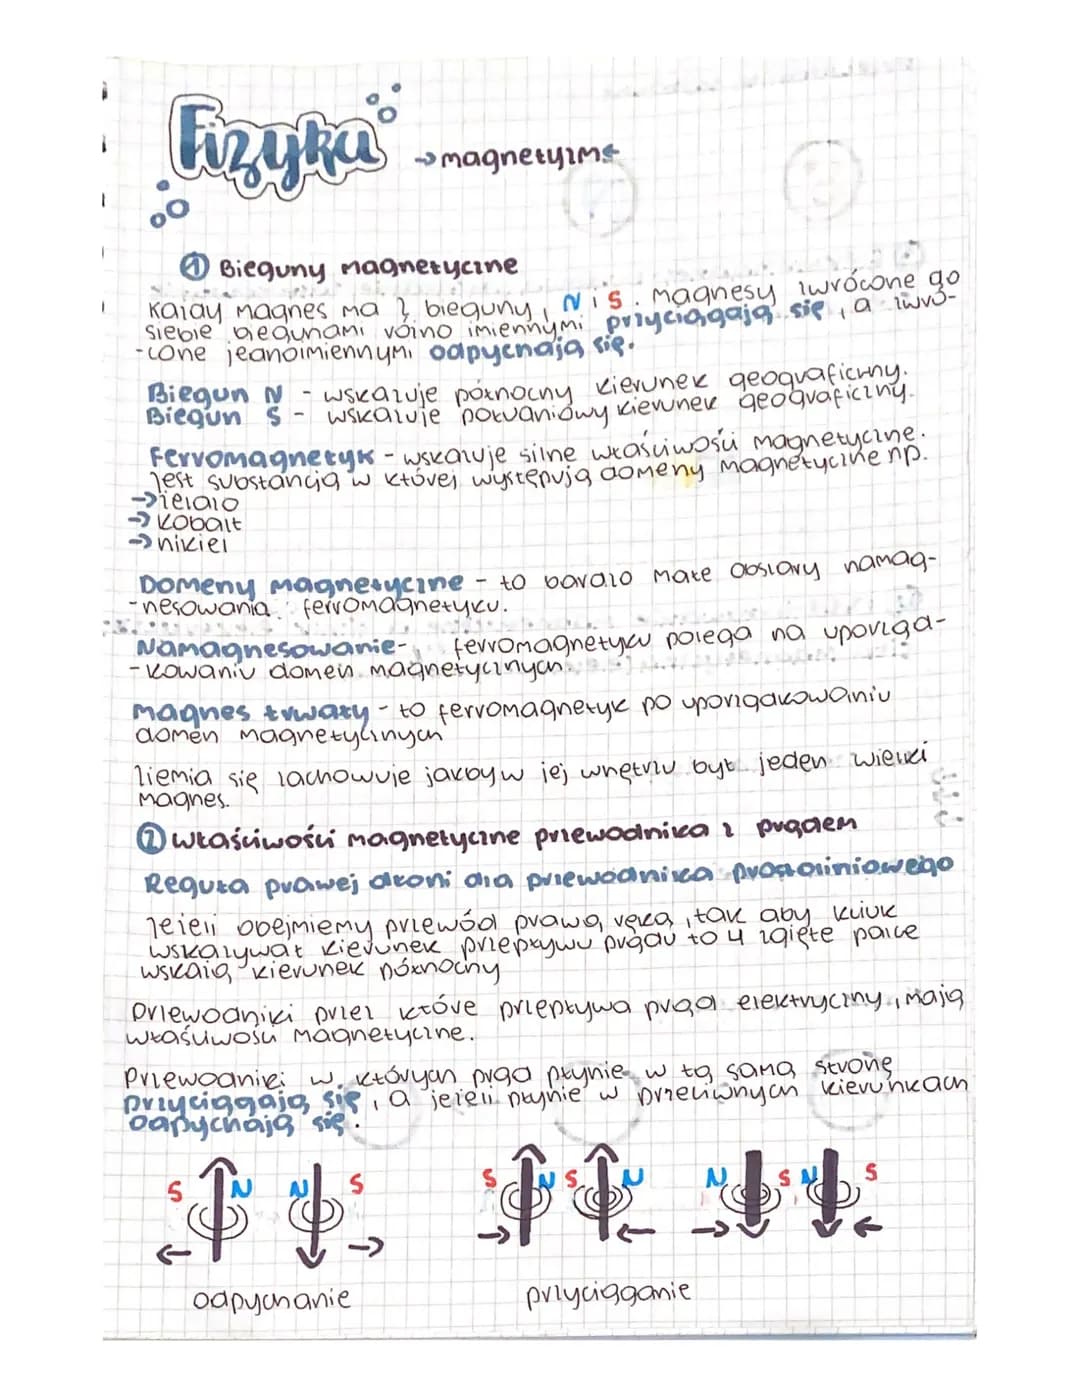 Fizyka
→magnetyzm←
① Bieguny magnetyczne
Każdy magnes ma 2 bieguny, N i S. Magnesy zwrócone do
siebie biegunami różno imiennymi przyciągają się, a zwró-
-cone jednoimiennymi odpychają się.
Biegun N - wskazuje północny kierunek geograficzny.
Biegun S - wskazuje południowy kierunek geograficzny.
Ferromagnetyk - wskazuje silne właściwości magnetyczne.
Jest substancją w której występują domeny magnetyczne np.
→żelazo
→kobalt
→nikiel
Domeny magnetyczne - to bardzo małe obszary namag-
-nesowania ferromagnetyku.
Namagnesowanie- ferromagnetyku polega na uporząd-
-kowaniu domen magnetycznych.
Magnes trwały - to ferromagnetyk po uporządkowaniu
domen magnetycznych
Ziemia się zachowuje jakby w jej wnętrzu był jeden wielki
magnes.
② Właściwości magnetyczne przewodnika z prądem
Reguła prawej dłoni dla przewodnika prostoliniowego
Jeżeli obejmiemy przewód prawą ręką, tak aby kciuk
wskazywał kierunek przepływu prądu to 4 zgięte palce
wskażą kierunek północny
Przewodniki przez które przepływa prąd elektryczny, mają
właściwości magnetyczne.
Przewodniki w których prąd płynie w tą samą stronę
przyciągają się, a jeżeli płynie w przeciwnych kierunkach
odpychają się.
S N N S S N S N N S N S
odpychanie przyciąganie